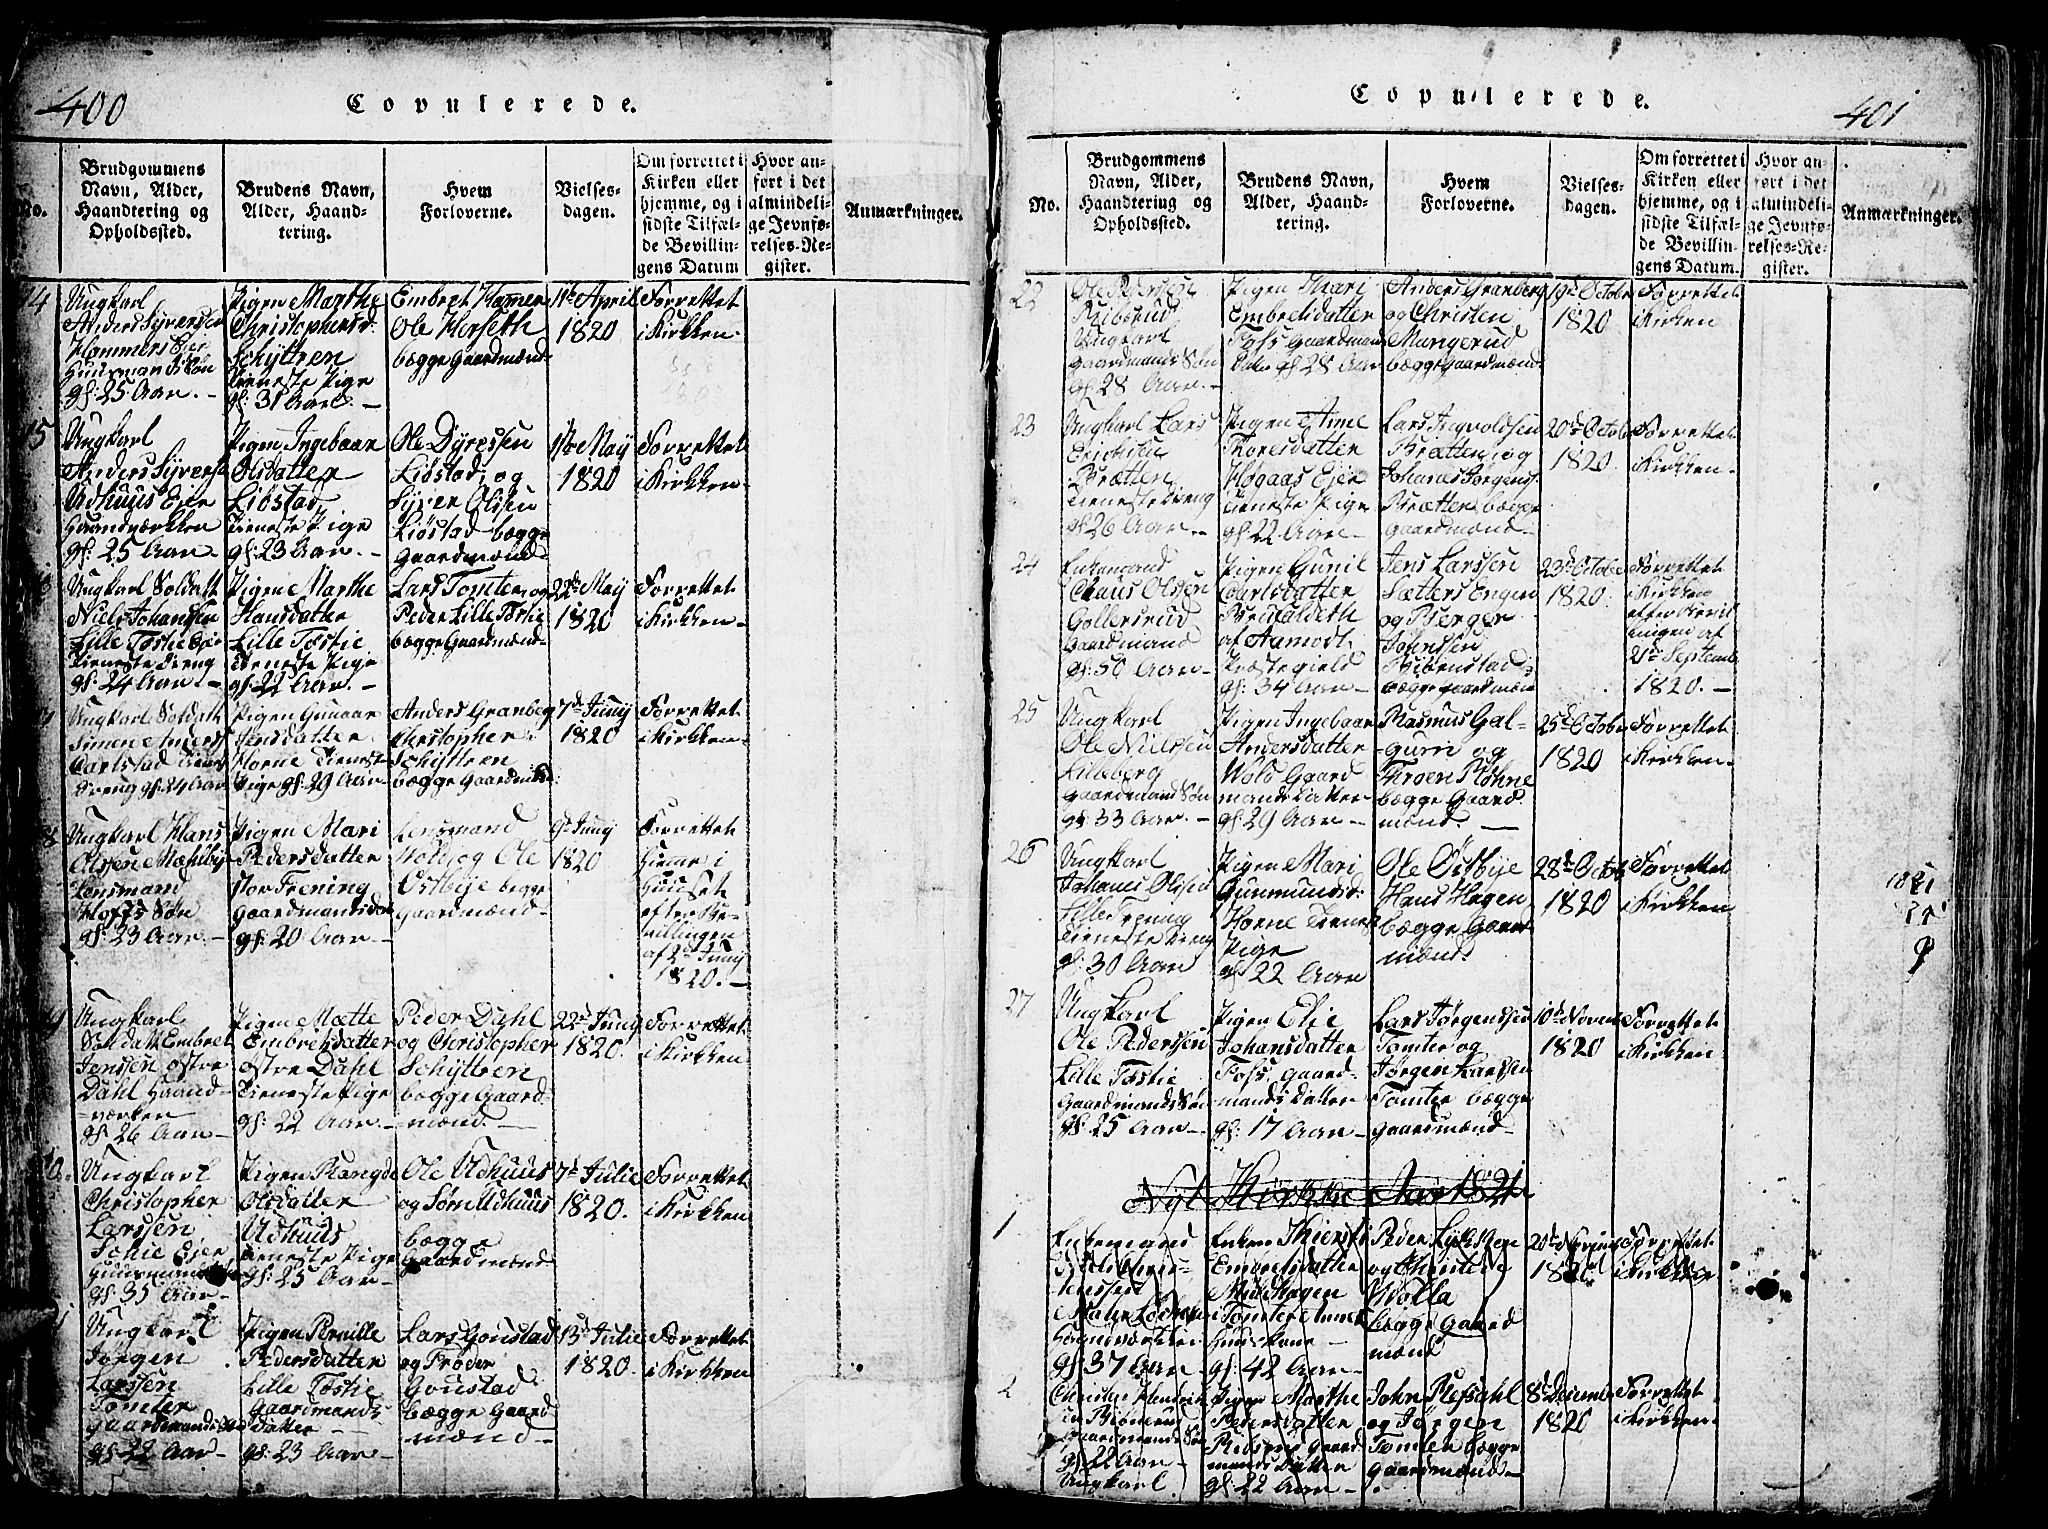 400
Copulerede.
No.
Brudgommens Navn, Alder, Haandtering og Opholdssted.
Brudens Navn, Alder, Haandtering.
Hvem Forloverne.
Vielsesdagen.
Om forrettet i Kirken eller hjemme, og i sidste Tilfælde Bevillingens Datum
Hvor anført i det almindelige Jevnførelses-Register.
Anmærkninger.
14
Ungkarl
Anders Syversen
Hammers Eier
Huusmands Søn
gl: 25 Aar. –
Pigen Marthe
Christophersd:
Schÿtten
tieneste Pige
gl: 31 Aar. –
Embret Hamer
Ole Horseth
begge Gaardmænd
11te April
1820
Forrettet
i Kirkken –
15
Ungkarl
Anders Syvers
Udhuus Eier
Haandværkker
gl: 25 Aar –
Pigen Ingebaar
Olsdatter
Liøstad
tieneste Pige
gl: 23 Aar. –
Ole Dÿressen
Liøstad, og
Syver Olsen
Liøstad begge
Gaardmænd
11te Maÿ
1820
Forrettet
i Kirkken –
Ungkarl Soldatt
Niels Johansen
Lille Tøstie Eier
tieneste Dreng
gl: 24 Aar. –
Pigen Marthe
Hansdatter
Lille Tøstie
tieneste Pige
gl: 22 Aar. –
Lars Tomter og
Peder Lille Tøstie
begge Gaardmænd
22de Maÿ
1820
Forrettet
i Kirkken –
Ungkarl Soldatt
Simen Anders
Carlstad tienes
Dreng gl: 24 Aar
Pigen Gunaar
Jensdatter
Horne tieneste
Pige gl: 29 Aar
Anders Granberg
Christopher
Schÿtten
begge Gaardmænd
7de Junÿ
1820
Forrettet
i Kirkken –
Ungkarl Hans
Olssen Mæhlbÿe
Lensmand
Hoffs Søn
gl: 23 Aar. –
Pigen Mari
Pedersdatter
stor Frening
Gaardmands dat
gl: 20 Aar –
Lensmand
Hold, og Ole
Østbÿe begge
Gaardmænd –
9de Junÿ
1820
Forrettet
hieme i
Huuset
efter Be-
villingen
af 2den Junÿ
1820. –
Ungkarl
Soldatt Embret
Jenssen østre
Dahl Haand-
værker
gl: 26 Aar –
Pigen Mætte
Embretsdatter
østre Dahl
tieneste Pige
gl: 22 Aar. –
Peder Dahl
og Christopher
Schÿtten
begge Gaard-
mænd. –
22de Junÿ
1820.
Forrettet
i Kirkken
Ungkarl
Christopher
Larssen
Eier
Huusmand
gl: 35 Aar –
Pigen Rangde
Olsdatter
Udhuus
tieneste Pige
gl: 25 Aar –
Ole Udhuus
og Søren Udhuus
begge
Gaardmænd
7de Julie
1820.
Forrettet
i Kirkken
Ungkarl
Jørgen
Larssen
Tomter
Gaardmands Søn
gl: 22 Aar –
Pigen Pernille
Pedersdatter
Lille Tøstie
Gaardmands
datter –
gl: 23 Aar. –
Lars Goustad
og Frøder
Goustad
begge Gaard
mænd –
13de Julie
1820.
Forrettet
i Kirkken
Copulerede.
401
No.
Brudgommens Navn, Alder, Haandtering og Opholdssted.
Brudens Navn, Alder, Haandtering.
Hvem Forloverne.
Vielsesdagen.
Om forrettet i Kirken eller hjemme, og i sidste Tilfælde Bevillingens Datum.
Hvor anført i det almindelige Jevnførelses-Register.
Anmærkninger.
22
Ole Pedersen
Ribsrud
Ungkarl
Gaardmands Søn
gl: 28 Aar. –
Pigen Mari
Embretsdatter
Foss Gaardmans
Datter gl: 28 Aar
Anders Granberg
og Christen
Mangerud
begge Gaardmænd
19de Octobr
1820
Forrettet
i Kirken
23
Ungkarl Lars
Erichsen
Bratten
tieneste Dreng
gl: 26 Aar –
Pigen Anne
Thoresdatter
Høgaas Eier
tieneste Pige
gl: 22 Aar –
Lars Ingvoldsen
Brætten og
Johanes Jørgens
Brætten, begge
Gaardmænd –
20de Octobr
1820.
Forrettet
i Kirkken –
24
Enkemand
Claus Olssen
Gollersrud
Gaardmand
gl: 50 Aar –
Pigen Gunil
Carlsdatter
af Aamodt
Præstegield
gl: 34 Aar –
Jens Larssen
Sætters Engen
og Berger
Johnssen
Ribenstad
begge Gaardmæn
23de Octobr
1820.
Forrettet
i Kirkken
efter Bevil
lingen af
21de Septemb
1820. –
25
Ungkarl
Ole Nielssen
Lilleberg
Gaardmands Søn
gl: 33 Aar. –
Pigen Ingebaar
Andersdatter
Wold Gaard
mands Datter
gl: 29 Aar –
Rasmus Gal-
-gurri og
Røhne
begge Gaard
mænd. –
25de Octobr
1820
Forrettet
i Kirkken –
26
Ungkarl
Johanes Olsen
Lille Frening
tieneste Dreng
gl: 30 Aar
Pigen Mari
Gunmundsd:
Horne tieneste
Pige
gl: 22 Aar
Ole Østbÿe
Hans Hagen
begge Gaard
mænd.
28de Octob
1820
Forrettet
i Kirkken
1821
27
Ungkarl
Ole Pedersen
Lille Tøstie
Gaardmands Søn
gl: 25 Aar –
Pigen Elie
Johansdatter
Foss, Gaard-
mands Datter
gl: 17 Aar –
Lars Jørgenssen
Tomter og
Jørgen Larssen
Tomter begge
Gaardmænd –
10de Novem
1820
Forrettet
i Kirkken
Nyt Kirkke Aar 1821
1
Enkemand
Enken Thiersti
Embretsdatter
Midthagen
i Tomter Annex
Huuskone
gl: 42 Aar –
gl: 37 Aar
Peder Lykken
og Christen
Wolla
begge Gaard
mænd
20de Novem
1820
Forrettet
i Kirkken
2
Gaardmands Søn
gl: 22 Aar –
Ungkarl.
Pigen Marthe
Pedersdatter
Gaard
mands Datter
gl: 22 Aar –
John Refsahl
og Jørgen
Tomter begge
Gaardmænd –
8de Decemb
1820
Forrettet
i Kirkken